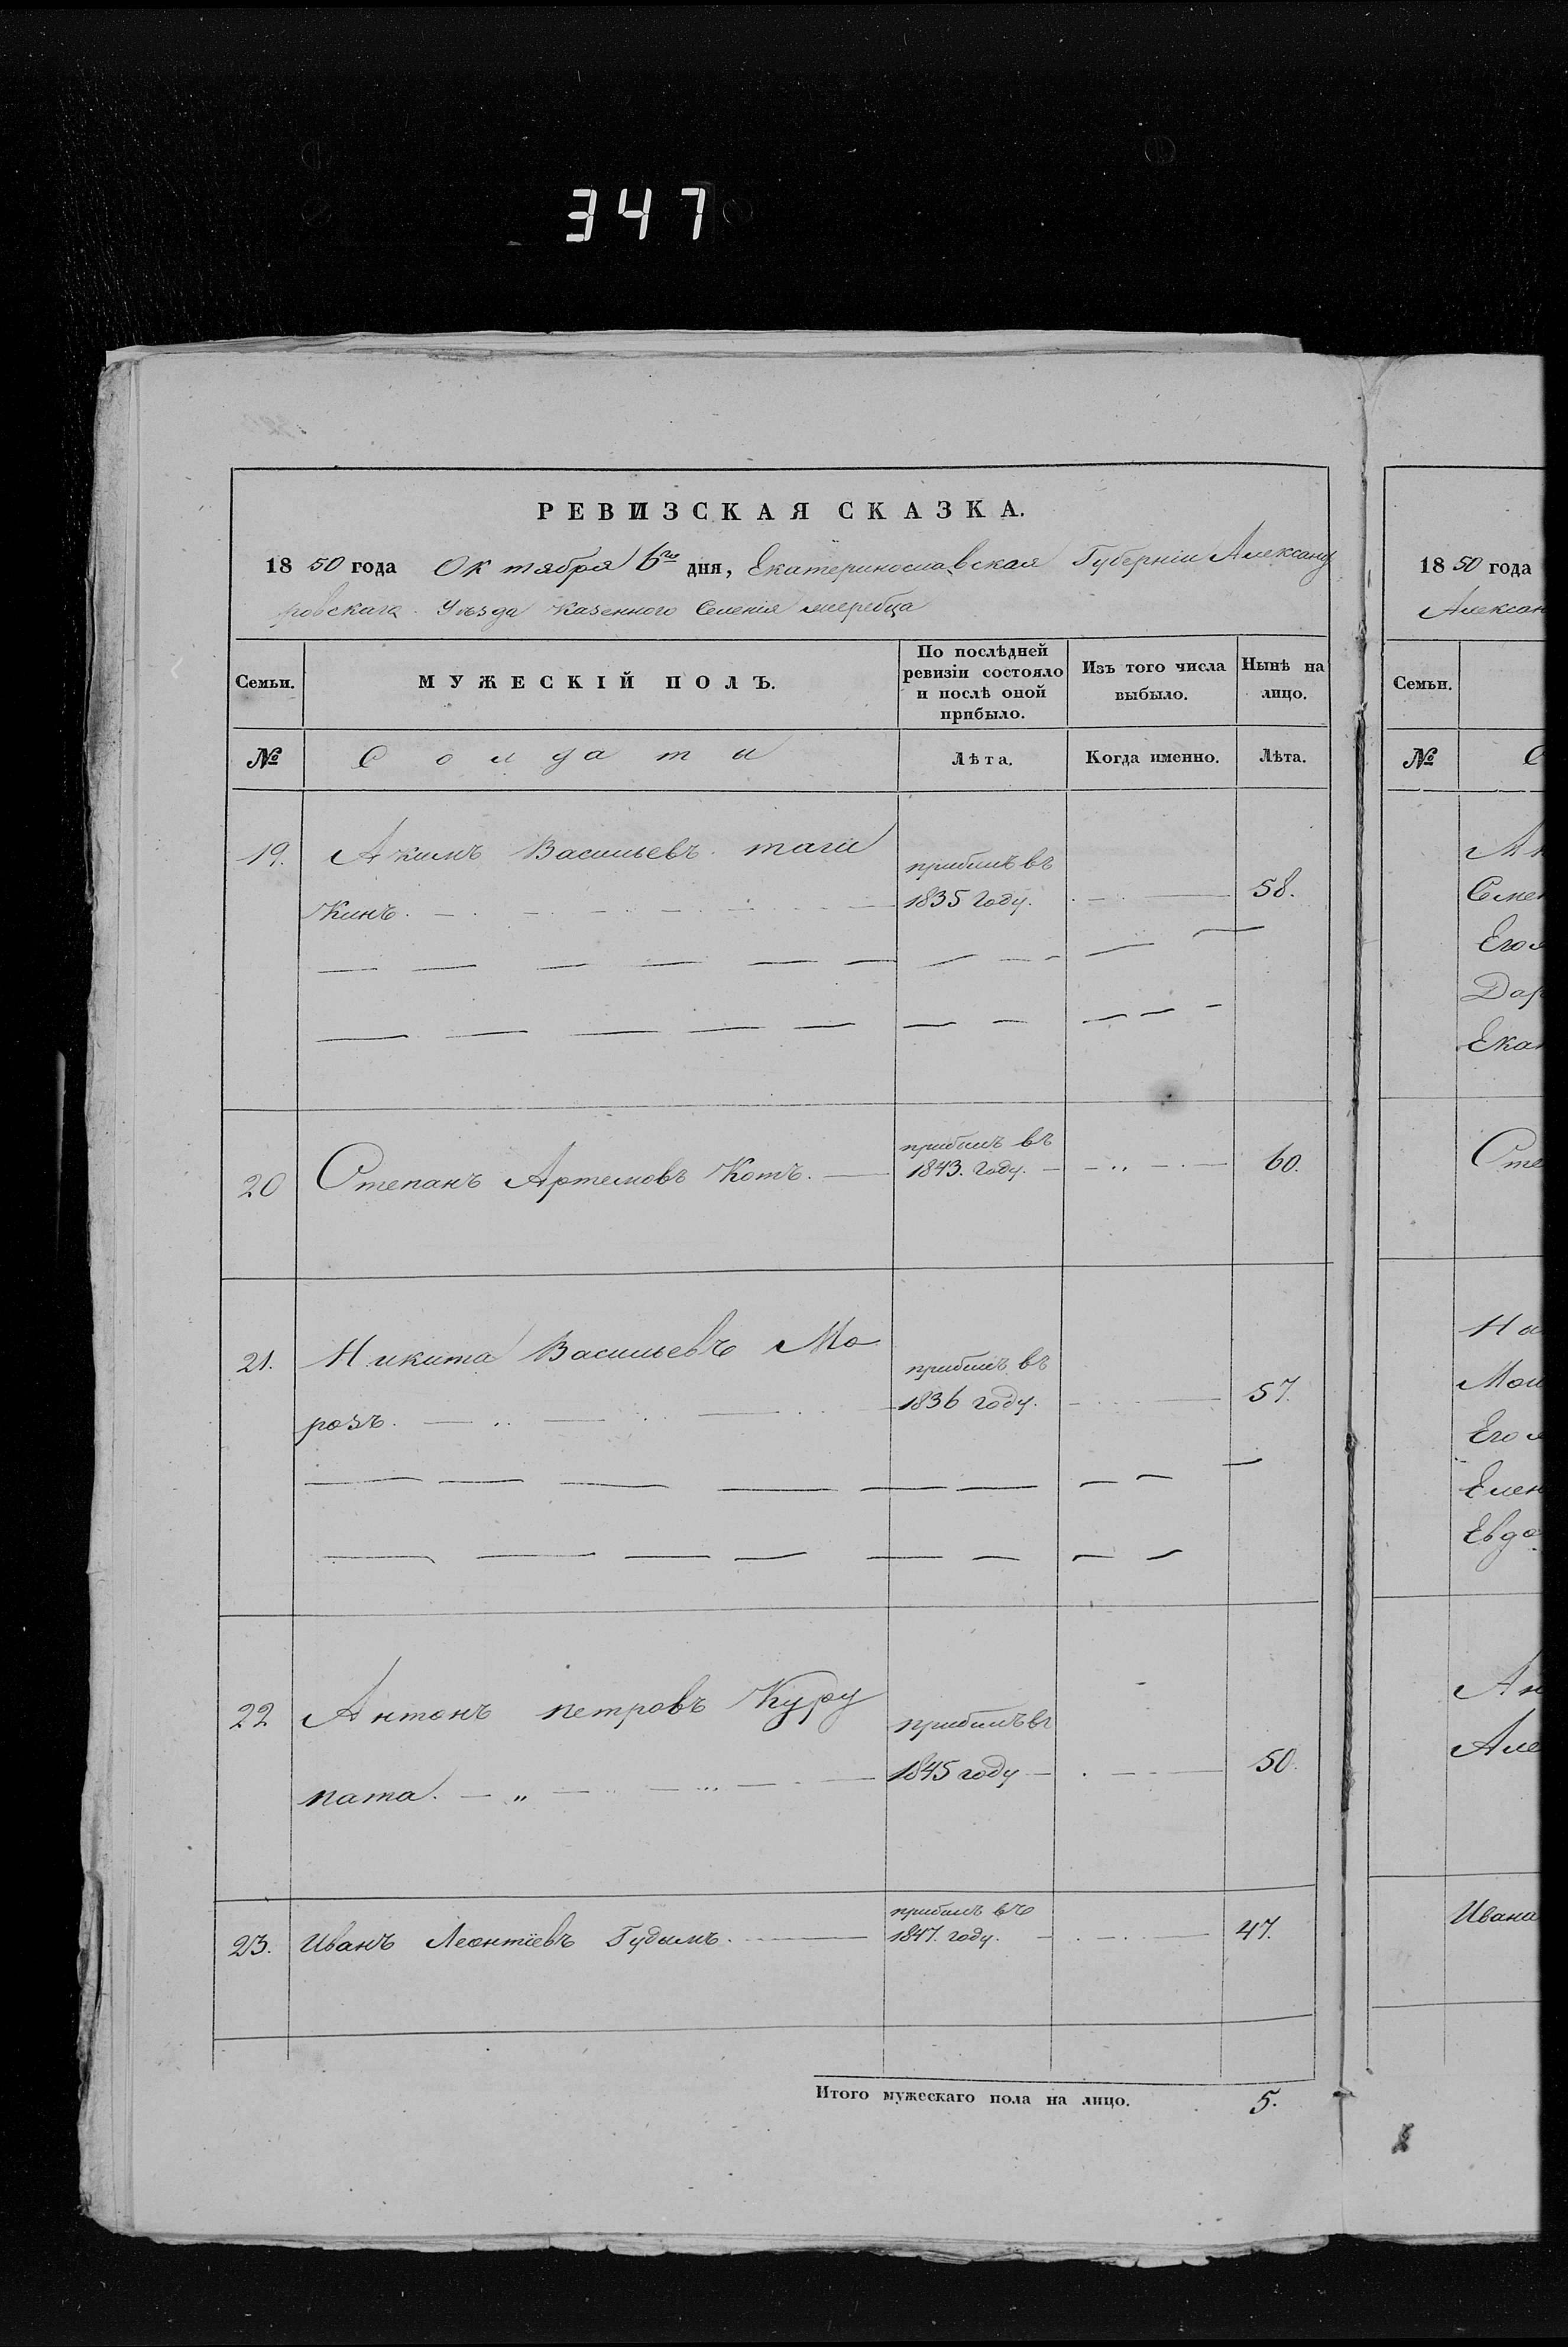 347
РЕВИЗСКАЯ СКАЗКА.
1850 года Октября 6го дня, Екатеринославская Губернiи Александ
ровскага Уѣзда казенного Селенiя жеребца
Семьи.
МУЖЕСКIЙ ПОЛЪ.
По послѣдней ревизiи состояло и послѣ оной прибыло.
Изъ того числа выбыло.
Нынѣ на лицо.
№
Солдати
Лѣта.
Когда именно.
Лѣта.
19. Акимъ Васильевъ таги
кинъ. прибылъ въ 1835 году. 58.
20 Степанъ Артемовъ Котъ. прибылъ въ 1843. году. 60.
21. Никита Васильевъ Мо
розъ. прибылъ въ 1836 году. 57.
22 Антонъ петровъ Куру
пата. прибылъ въ 1845 году 50.
23. Иванъ Леонтiевъ Гудымъ. прибылъ въ 1847. году. 47.
Итого мужескаго пола на лицо. 5.
1850 года
Алексан
Семьи.
№
С
Ак
Семе
Его
Дар
Екат
Сте
Ни
Его
Елен
Евдо
Ан
Але
Ивана